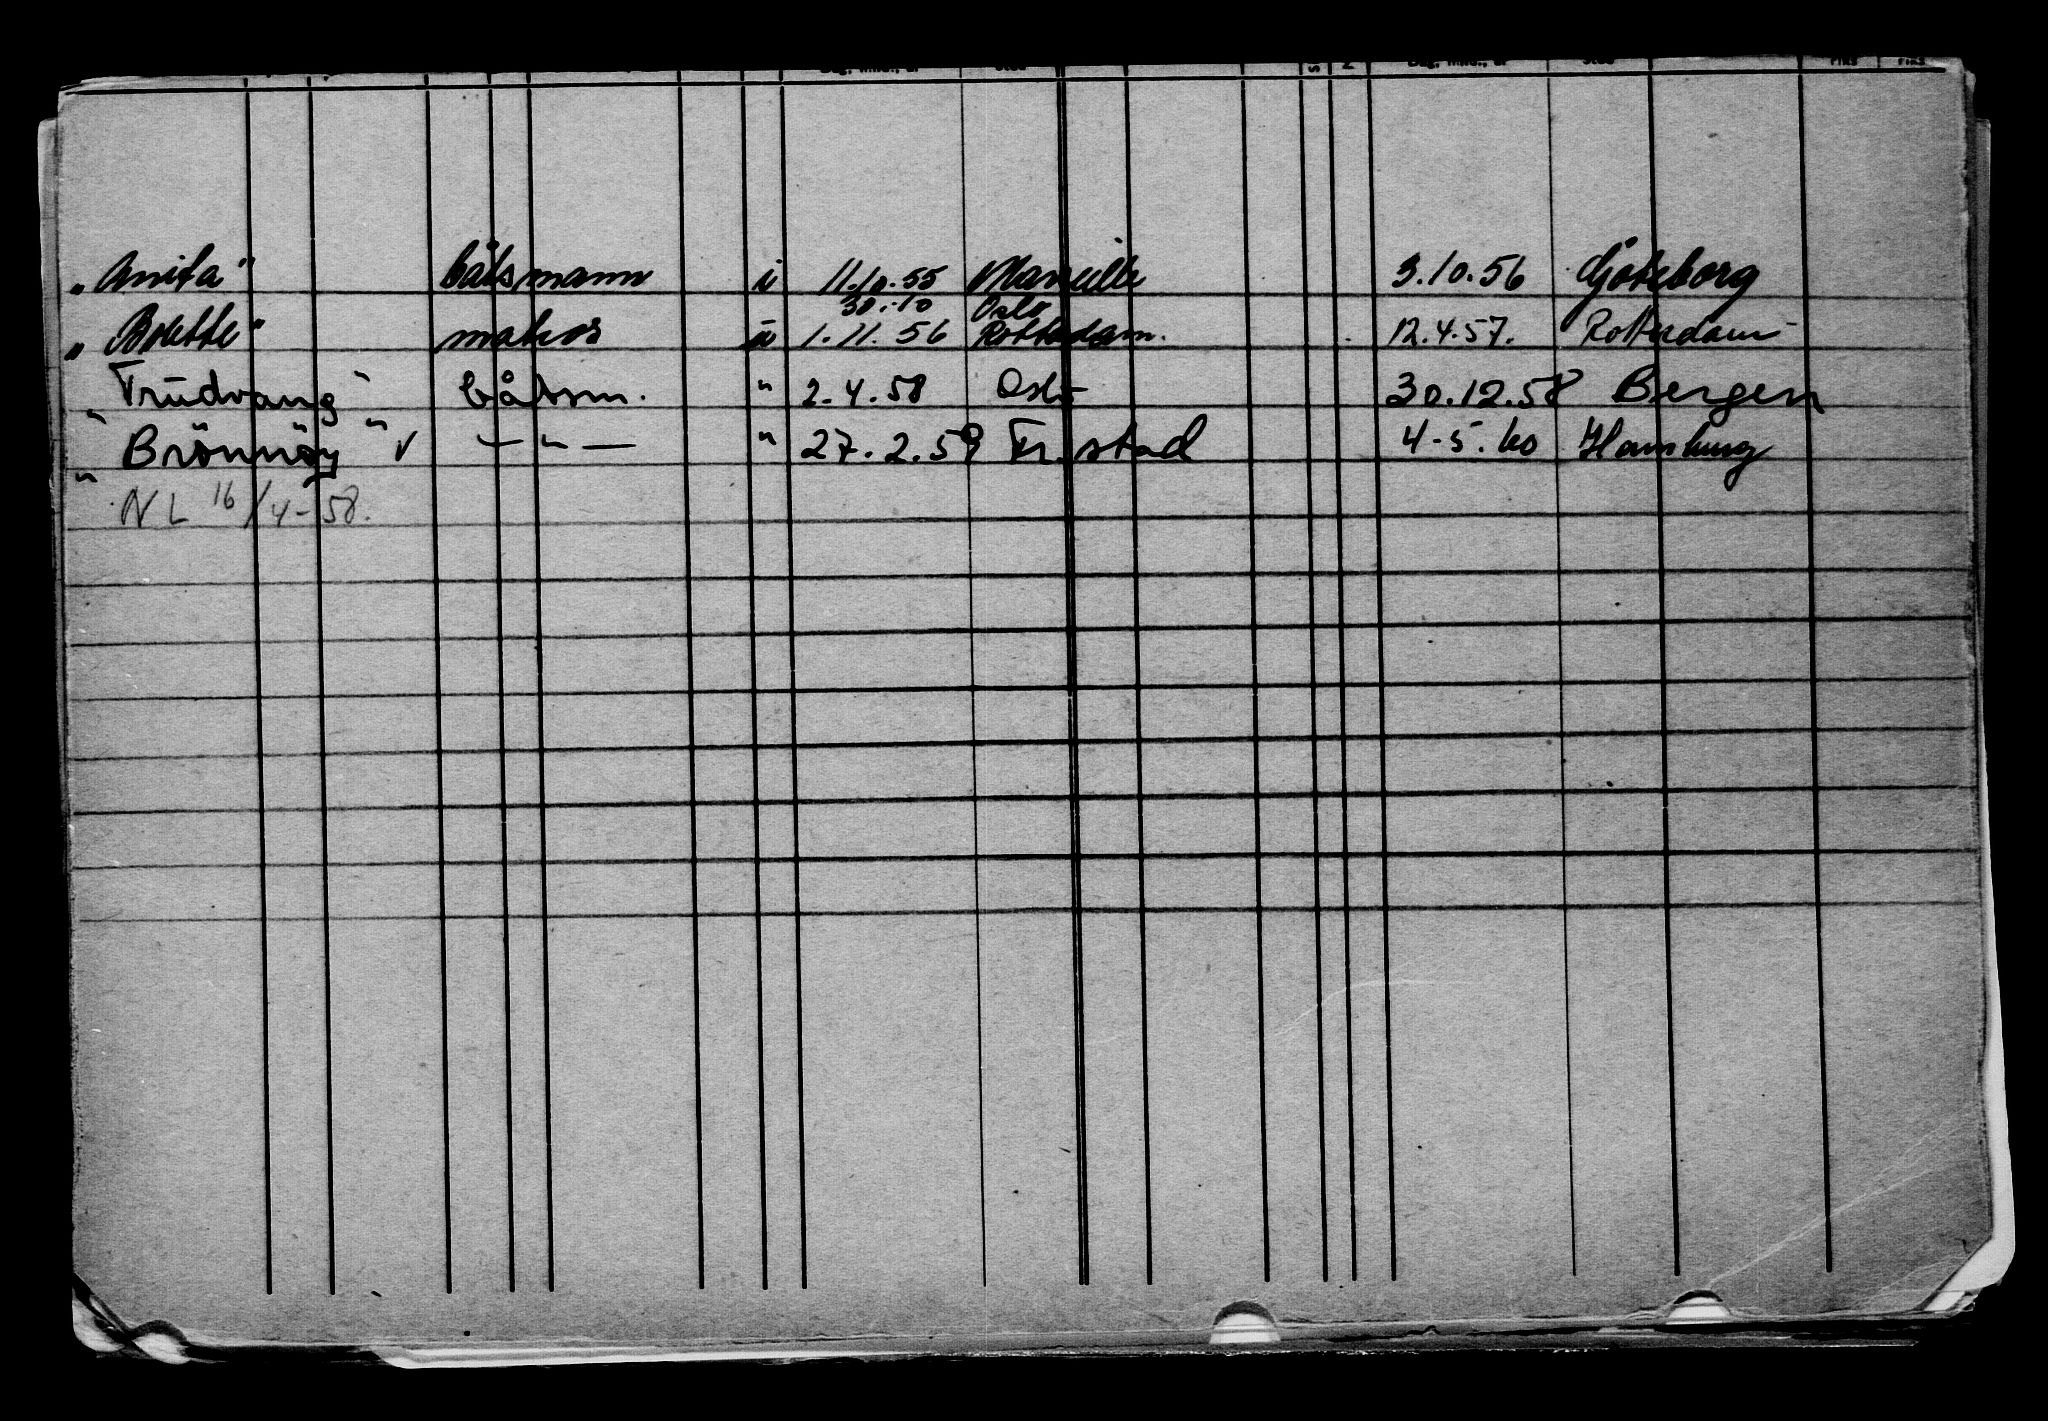 "Anita" båtsmann u 11.10.55 Marseille 3.10.56 Göteborg
30.10 Oslo
"Bolette" matros u 1.11.56 Rotterdam. 12.4.57. Rotterdam
"Trudvang" båtsm. " 2.4.58 Oslo 30.12.58 Bergen
"Brönnöy" v —"— " 27.2.59 Fr.stad 4-5.60 Hamburg
NL 16/4-58.